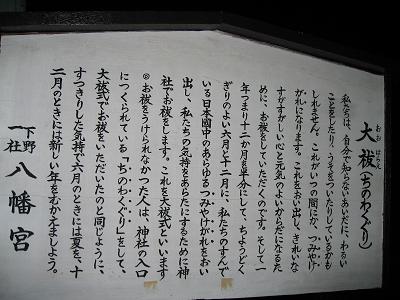 大祓(ちのわくぐり)
おお はらえ
私たちは、自分で知らないあいだに、わるい
ことをしたり、うそをついたりしているかも
しれません。これがいつの間にか、つみやけ
がれになります。これをおい出し、きれいな
すがすがしい心と元気のよいからだになるた
めに、お祓をしていただくのです。そして一
年つまり十二か月を半分にして、ちょうどく
ぎりのよい六月と十二月に、私たちのすんで
いる日本國中のあらゆるつみやけがれをおい
出し、私たちの気持をあらたにするために神
社でお祓をします。これを大祓式といいます
◎お祓をうけられなかった人は、神社の入口
につくられている「ちのわくぐり」をして、
大祓式でお祓をいただいたのと同じように、
すっきりした気持で六月のときには夏を、十
二月のときには新しい年をむかえましょう。
下野一社 八幡宮